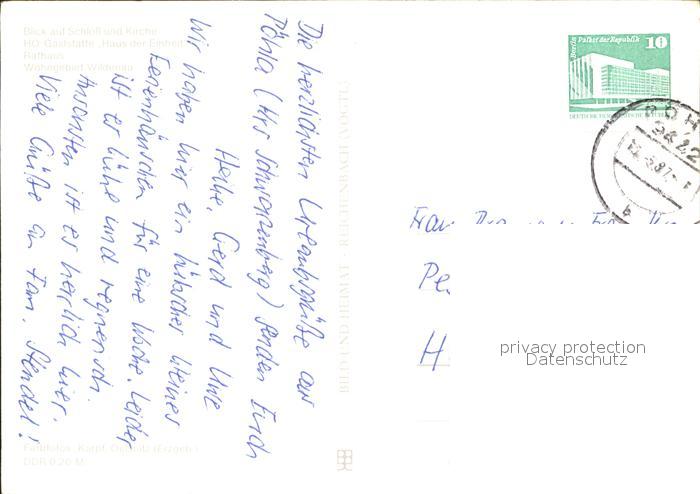 Blick auf Schloß und Kirche
HO-Gaststätte „Haus der Einheit"
Rathaus
Wohngebiet Wildenau
Die herzlichsten Urlaubsgrüße aus
Pöhla (Krs Schwarzenberg) senden Euch
Heike, Gerd und Uwe
Wir haben hier ein hübsches kleines
Ferienhäuschen für eine Woche. Leider
ist es kühl und regnerisch.
Ansonsten ist es herrlich hier.
Viele Grüße an Fam. Stendel!
Farbfotos: Karpf, Oelsnitz (Erzgeb.)
DDR 0,20 M
BILD UND HEIMAT · REICHENBACH (VOGTL)
Berlin Palast der Republik 10
DEUTSCHE DEMOKRATISCHE REPUBLIK
Frau
Pe
H
privacy protection
Datenschutz